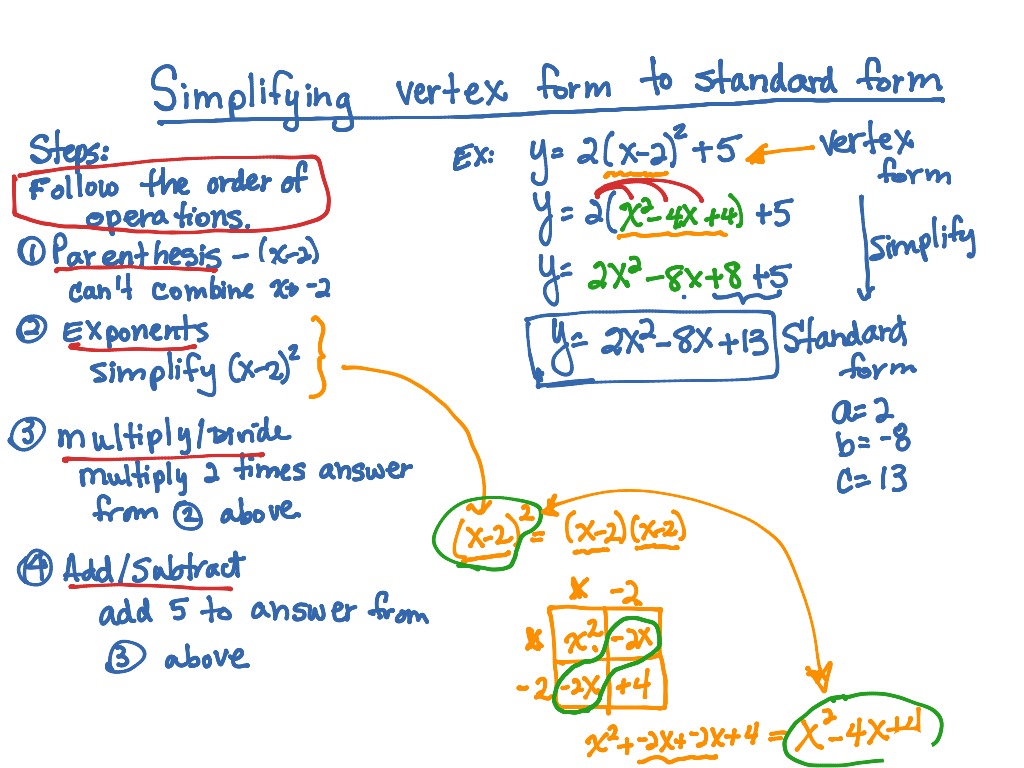 Simplifying vertex form to standard form
Steps:
Follow the order of
operations.
① Parenthesis - (x-2)
can't combine x & -2
② Exponents
simplify (x-2)²
③ Multiply/Divide
multiply 2 times answer
from ② above
④ Add/Subtract
add 5 to answer from
③ above
Ex: y = 2(x-2)² + 5
vertex
form
y = 2(x² - 4x + 4) + 5
simplify
y = 2x² - 8x + 8 + 5
y = 2x² - 8x + 13
Standard
form
a = 2
b = -8
c = 13
(x-2)² = (x-2)(x-2)
x -2
x x² -2x
-2 -2x +4
x² + -2x + -2x + 4 = x² - 4x + 4